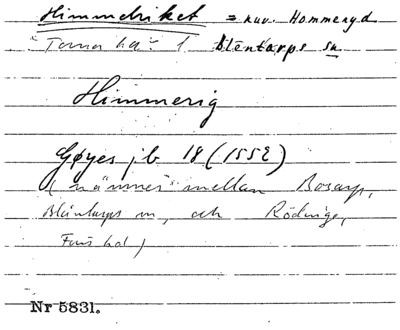 Himmelriket = nuv. Hommeryd
Torna hd: i Blentarps sn
Himmerig
Gøyes jb 18 (1552)
( nämnes mellan Bosarp,
Blentarps sn, och Rödinge,
Färs hd )
Nr 5831.